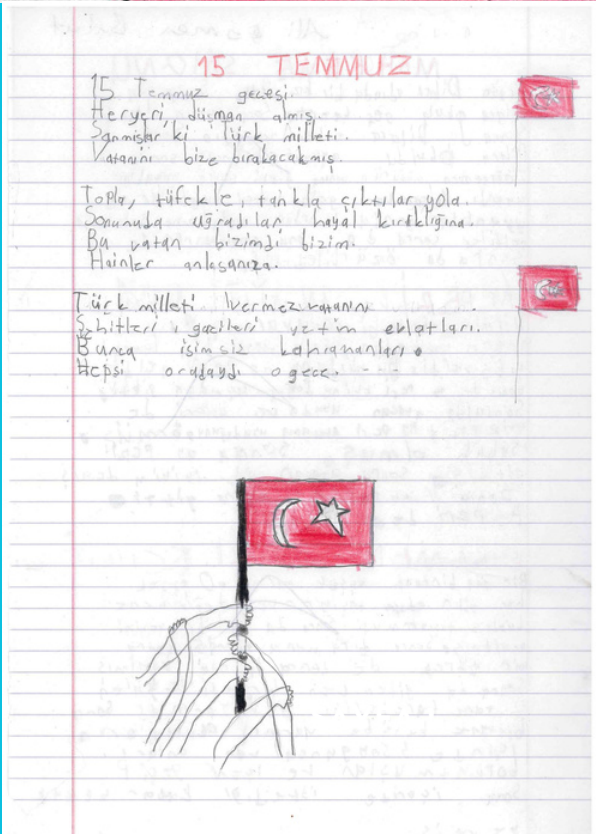 15 TEMMUZ
15 Temmuz gecesi
Heryeri, düşman almış.
Sanmışlar ki Türk milleti.
Vatanını bize bırakacakmış.
Topla, tüfekle, tankla çıktılar yola.
Sonunuda uğradılar hayal kırıklığına.
Bu vatan bizimdi bizim.
Hainler anlasanıza.
Türk milleti vermez vatanını
Şehitleri, gazileri yetim evlatları.
Bunca isimsiz kahramanları.
Hepsi oradaydı o gece. ---